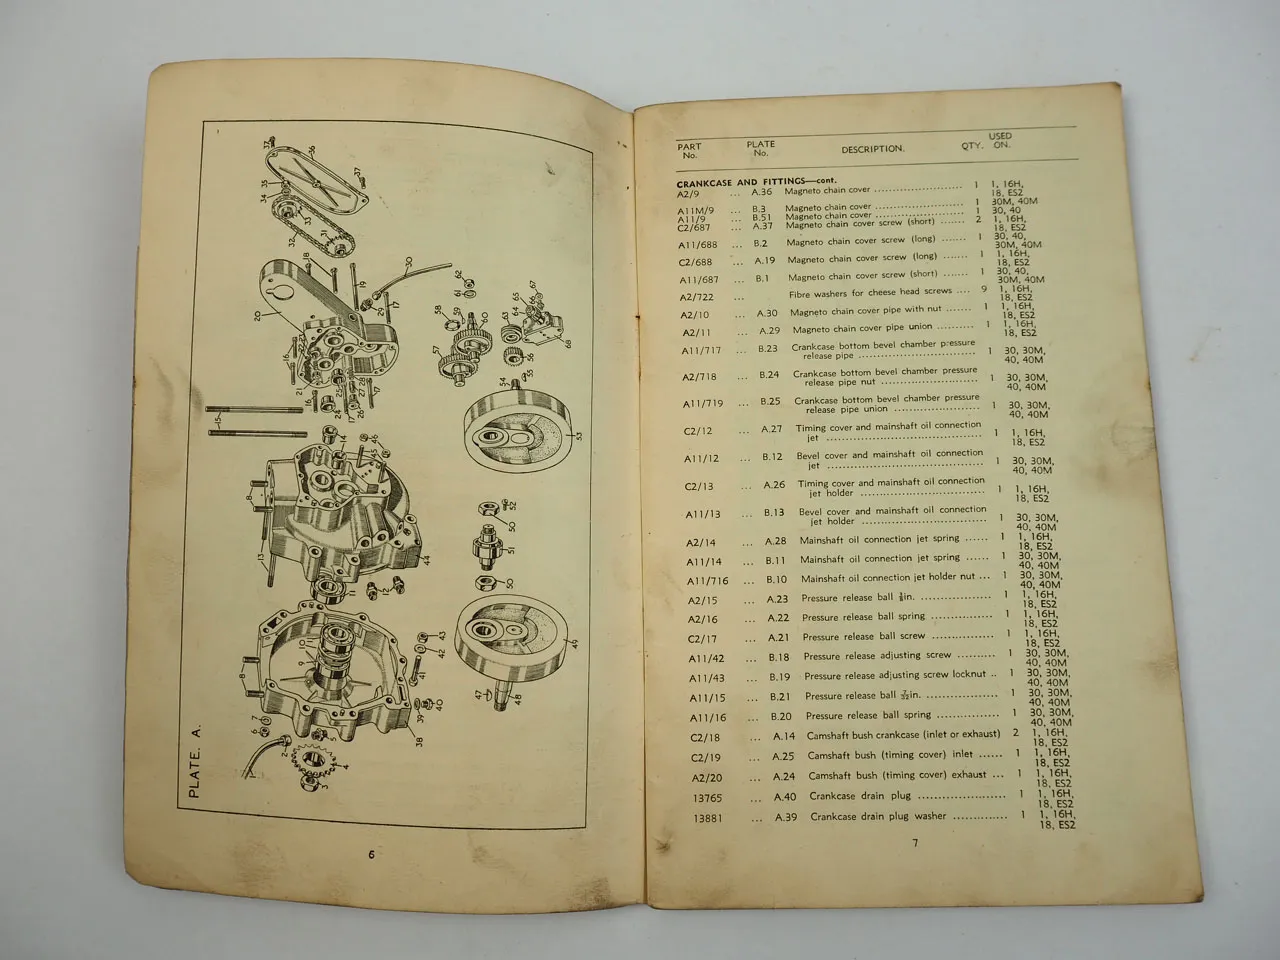 PLATE. A.
6
PART No.
PLATE No.
DESCRIPTION.
QTY.
USED ON.
CRANKCASE AND FITTINGS—cont.
A2/9 ... A.36 Magneto chain cover ...................... 1 1, 16H,
18, ES2
A11M/9 ... B.3 Magneto chain cover ...................... 1 30M, 40M
A11/9 ... B.51 Magneto chain cover ...................... 1 30, 40
C2/687 ... A.37 Magneto chain cover screw (short) ....... 2 1, 16H,
18, ES2
A11/688 ... B.2 Magneto chain cover screw (long) ....... 1 30, 40,
30M, 40M
C2/688 ... A.19 Magneto chain cover screw (long) ....... 1 1, 16H,
18, ES2
A11/687 ... B.1 Magneto chain cover screw (short) ....... 1 30, 40,
30M, 40M
A2/722 ... Fibre washers for cheese head screws .... 9 1, 16H,
18, ES2
A2/10 ... A.30 Magneto chain cover pipe with nut ....... 1 1, 16H,
18, ES2
A2/11 ... A.29 Magneto chain cover pipe union .......... 1 1, 16H,
18, ES2
A11/717 ... B.23 Crankcase bottom bevel chamber pressure
release pipe ............................ 1 30, 30M,
40, 40M
A2/718 ... B.24 Crankcase bottom bevel chamber pressure
release pipe nut ........................ 1 30, 30M,
40, 40M
A11/719 ... B.25 Crankcase bottom bevel chamber pressure
release pipe union ...................... 1 30, 30M,
40, 40M
C2/12 ... A.27 Timing cover and mainshaft oil connection
jet ..................................... 1 1, 16H,
18, ES2
A11/12 ... B.12 Bevel cover and mainshaft oil connection
jet ..................................... 1 30, 30M,
40, 40M
C2/13 ... A.26 Timing cover and mainshaft oil connection
jet holder .............................. 1 1, 16H,
18, ES2
A11/13 ... B.13 Bevel cover and mainshaft oil connection
jet holder .............................. 1 30, 30M,
40, 40M
A2/14 ... A.28 Mainshaft oil connection jet spring ...... 1 1, 16H,
18, ES2
A11/14 ... B.11 Mainshaft oil connection jet spring ...... 1 30, 30M,
40, 40M
A11/716 ... B.10 Mainshaft oil connection jet holder nut ... 1 30, 30M,
40, 40M
A2/15 ... A.23 Pressure release ball in. ................ 1 1, 16H,
18, ES2
A2/16 ... A.22 Pressure release ball spring ............. 1 1, 16H,
18, ES2
C2/17 ... A.21 Pressure release ball screw .............. 1 1, 16H,
18, ES2
A11/42 ... B.18 Pressure release adjusting screw ......... 1 30, 30M,
40, 40M
A11/43 ... B.19 Pressure release adjusting screw locknut .. 1 30, 30M,
40, 40M
A11/15 ... B.21 Pressure release ball in. ................ 1 30, 30M,
40, 40M
A11/16 ... B.20 Pressure release ball spring ............. 1 30, 30M,
40, 40M
C2/18 ... A.14 Camshaft bush crankcase (inlet or exhaust) 2 1, 16H,
18, ES2
C2/19 ... A.25 Camshaft bush (timing cover) inlet ...... 1 1, 16H,
18, ES2
A2/20 ... A.24 Camshaft bush (timing cover) exhaust ... 1 1, 16H,
18, ES2
13765 ... A.40 Crankcase drain plug ...................... 1 1, 16H,
18, ES2
13881 ... A.39 Crankcase drain plug washer .............. 1 1, 16H,
18, ES2
7